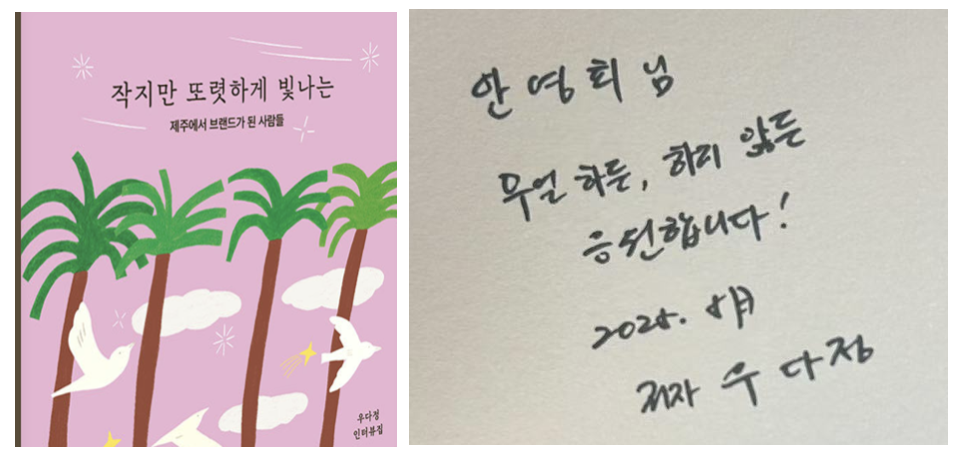 작지만 또렷하게 빛나는
제주에서 브랜드가 된 사람들
우다정
인터뷰집
안영회님
무얼 하든, 하지 않든
응원합니다!
2025. 8月
저자 우다정